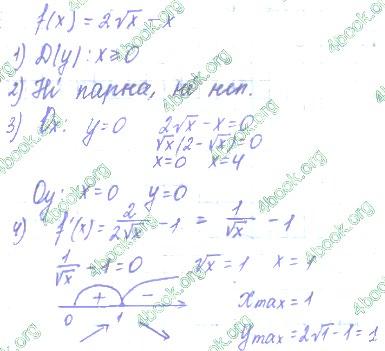 f(x) = 2√x - x
1) D(y): x ≥ 0
2) Ні парна, ні неп.
3) Ox: y=0 2√x - x = 0
√x(2 - √x) = 0
x=0 x=4
Oy: x=0 y=0
4) f'(x) = 2/(2√x) - 1 = 1/√x - 1
1/√x - 1 = 0 √x = 1 x = 1
+ -
0 1
x max = 1
y max = 2√1 - 1 = 1
4book.org